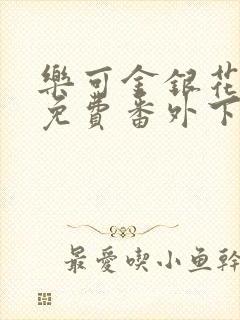 樂可金銀花
免費番外下
最愛喫小魚幹